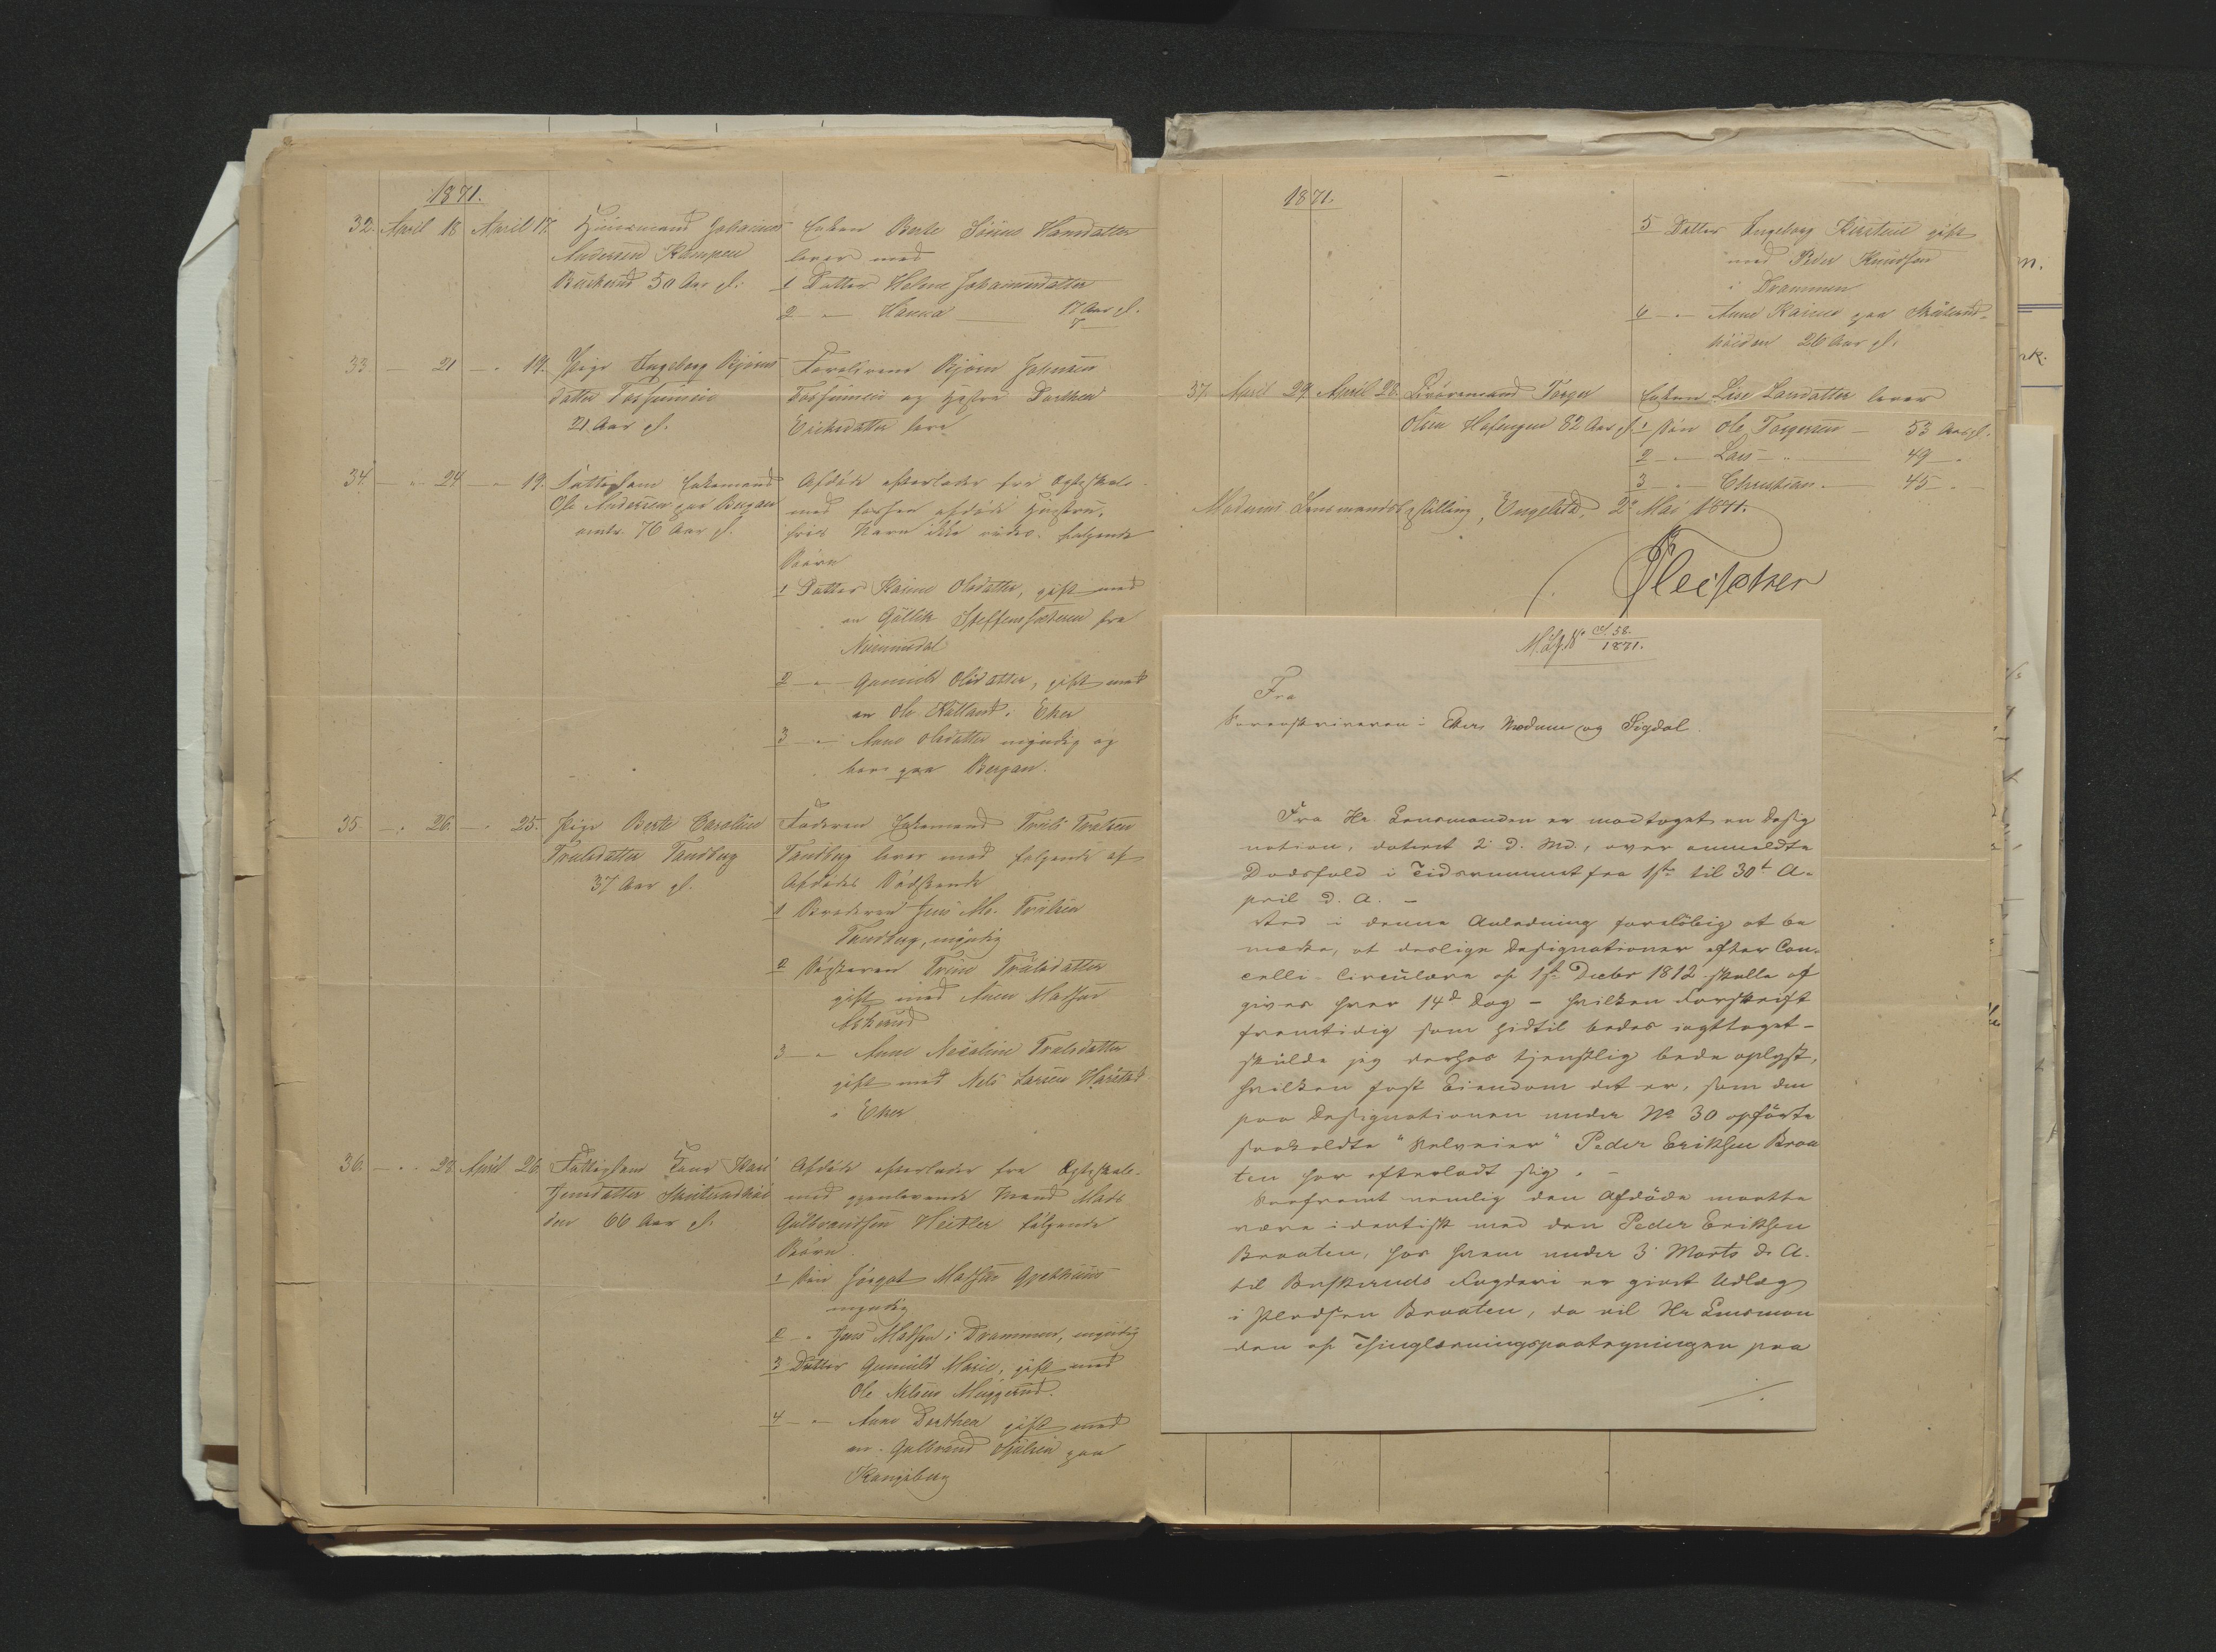 1871.
32. April 18 April 17. Huusmand Johannes
Andersen Kampen
Buskerud 50 Aar gl.
Enken Berte Sörine Hansdatter
lever med
1 Datter Helene Johannesdatter
2 — " — Hanna — 17 Aar gl.
33 — 21 — " 19. Pige Ingeborg Björns
datter Fossumeie
21 Aar gl.
Forældrene Björn Johnsen
Fossumeie og Hustru Dorthea
Eriksdatter leve
34. — " 24 — " 19. Fattiglem Enkemand
Ole Andersen paa Bergan
omtr. 76 Aar gl.
Afdöde efterlader fra Ægteskab
med forhen afdöde Hustru,
hvis Navn ikke vides, følgende
Börn
1 Datter Karine Olsdatter, gift med
en Gullik Steffens fra
Numedal
2 — " — Gunnild Olsdatter, gift med
en Ole i Eker
3 — " — Anne Olsdatter myndig og
leve paa Bergan.
35 — " 26. — " 25. Pige Berte Caroline
Trulsdatter Tandberg
37 Aar gl.
Faderen Enkemand Truls Trulsen
Tandberg lever med følgende af
Afdödes Södskende
1 Broderen Jens Mo. Trulsen
Tandberg, myndig
2 Søsteren Trine Trulsdatter
gift med Madsen
Askerud
3 — " Anne Nicoline Trulsdatter
gift med Nels Larsen Harstad
i Eker
36. — " 28. April 26 Fattiglem Kari
Jensdatter Skuterudhöi
den 66 Aar gl.
Afdöde efterlader fra Ægteskab
med gjenlevende Mand Mads
Gulbrandsen følgende
Börn
1 Sön Madsen Grethuus
myndig
2 — " Jens Madsen i Drammen, myndig
3 Datter Gunnild Marie, gift med
Ole Nelsen Muggerud.
4 — " — Anne Dorthea gift med
en Gulbrand paa
Kongsberg
1871.
5 Datter Ingeborg Kirstine gift
med Peder Knudsen
i Drammen
6 — " — Anne Karine paa Skuterud-
höiden 26 Aar gl.
37. April 29 April 28. Livöremand Torger
Olsen Hafengen 82 Aar gl.
Enken Lise Larsdatter lever
1 Sön Ole Torgersen — 53 Aar gl.
2 — " — Lars — " — 49 — "
3 — " — Christian — 45 — "
Modums Lensmandsbestilling, Engelstad, 2 Mai 1871.
Fleischer
C. 58.
1871.
Fra
Sorenskriveren i Eker, Modum og Sigdal.
Fra Hr. Lensmanden er modtaget en Desig
nation, dateret 2 d. Md., over anmeldte
Dødsfald i Tidsrummet fra 1ste til 30te A-
pril d. A. —
Ved i denne Anledning foreløbig at be
mærke, at deslige Designationer efter Can-
celli-Circulære af 1ste Decbr 1812 skulle af
gives hver 14d Dag — hvilken Forskrift
fremtidig som hidtil bedes iagttaget —
skulde jeg derhos tjenstlig bede oplyst,
hvilken fast Eiendom det er, som den
paa Designationen under No 30 opførte
saakaldte "Selveier" Peder Eriksen Braa
ten har efterladt sig. —
Saafremt nemlig den Afdöde maatte
være identisk med den Peder Eriksen
Braaten, hos hvem under 3 Marts d. A.
til Buskeruds Fogderi er gjort Udlæg
i Pladsen Braaten, da vil Hr Lensman
den af Thinglæsningspaategningen paa